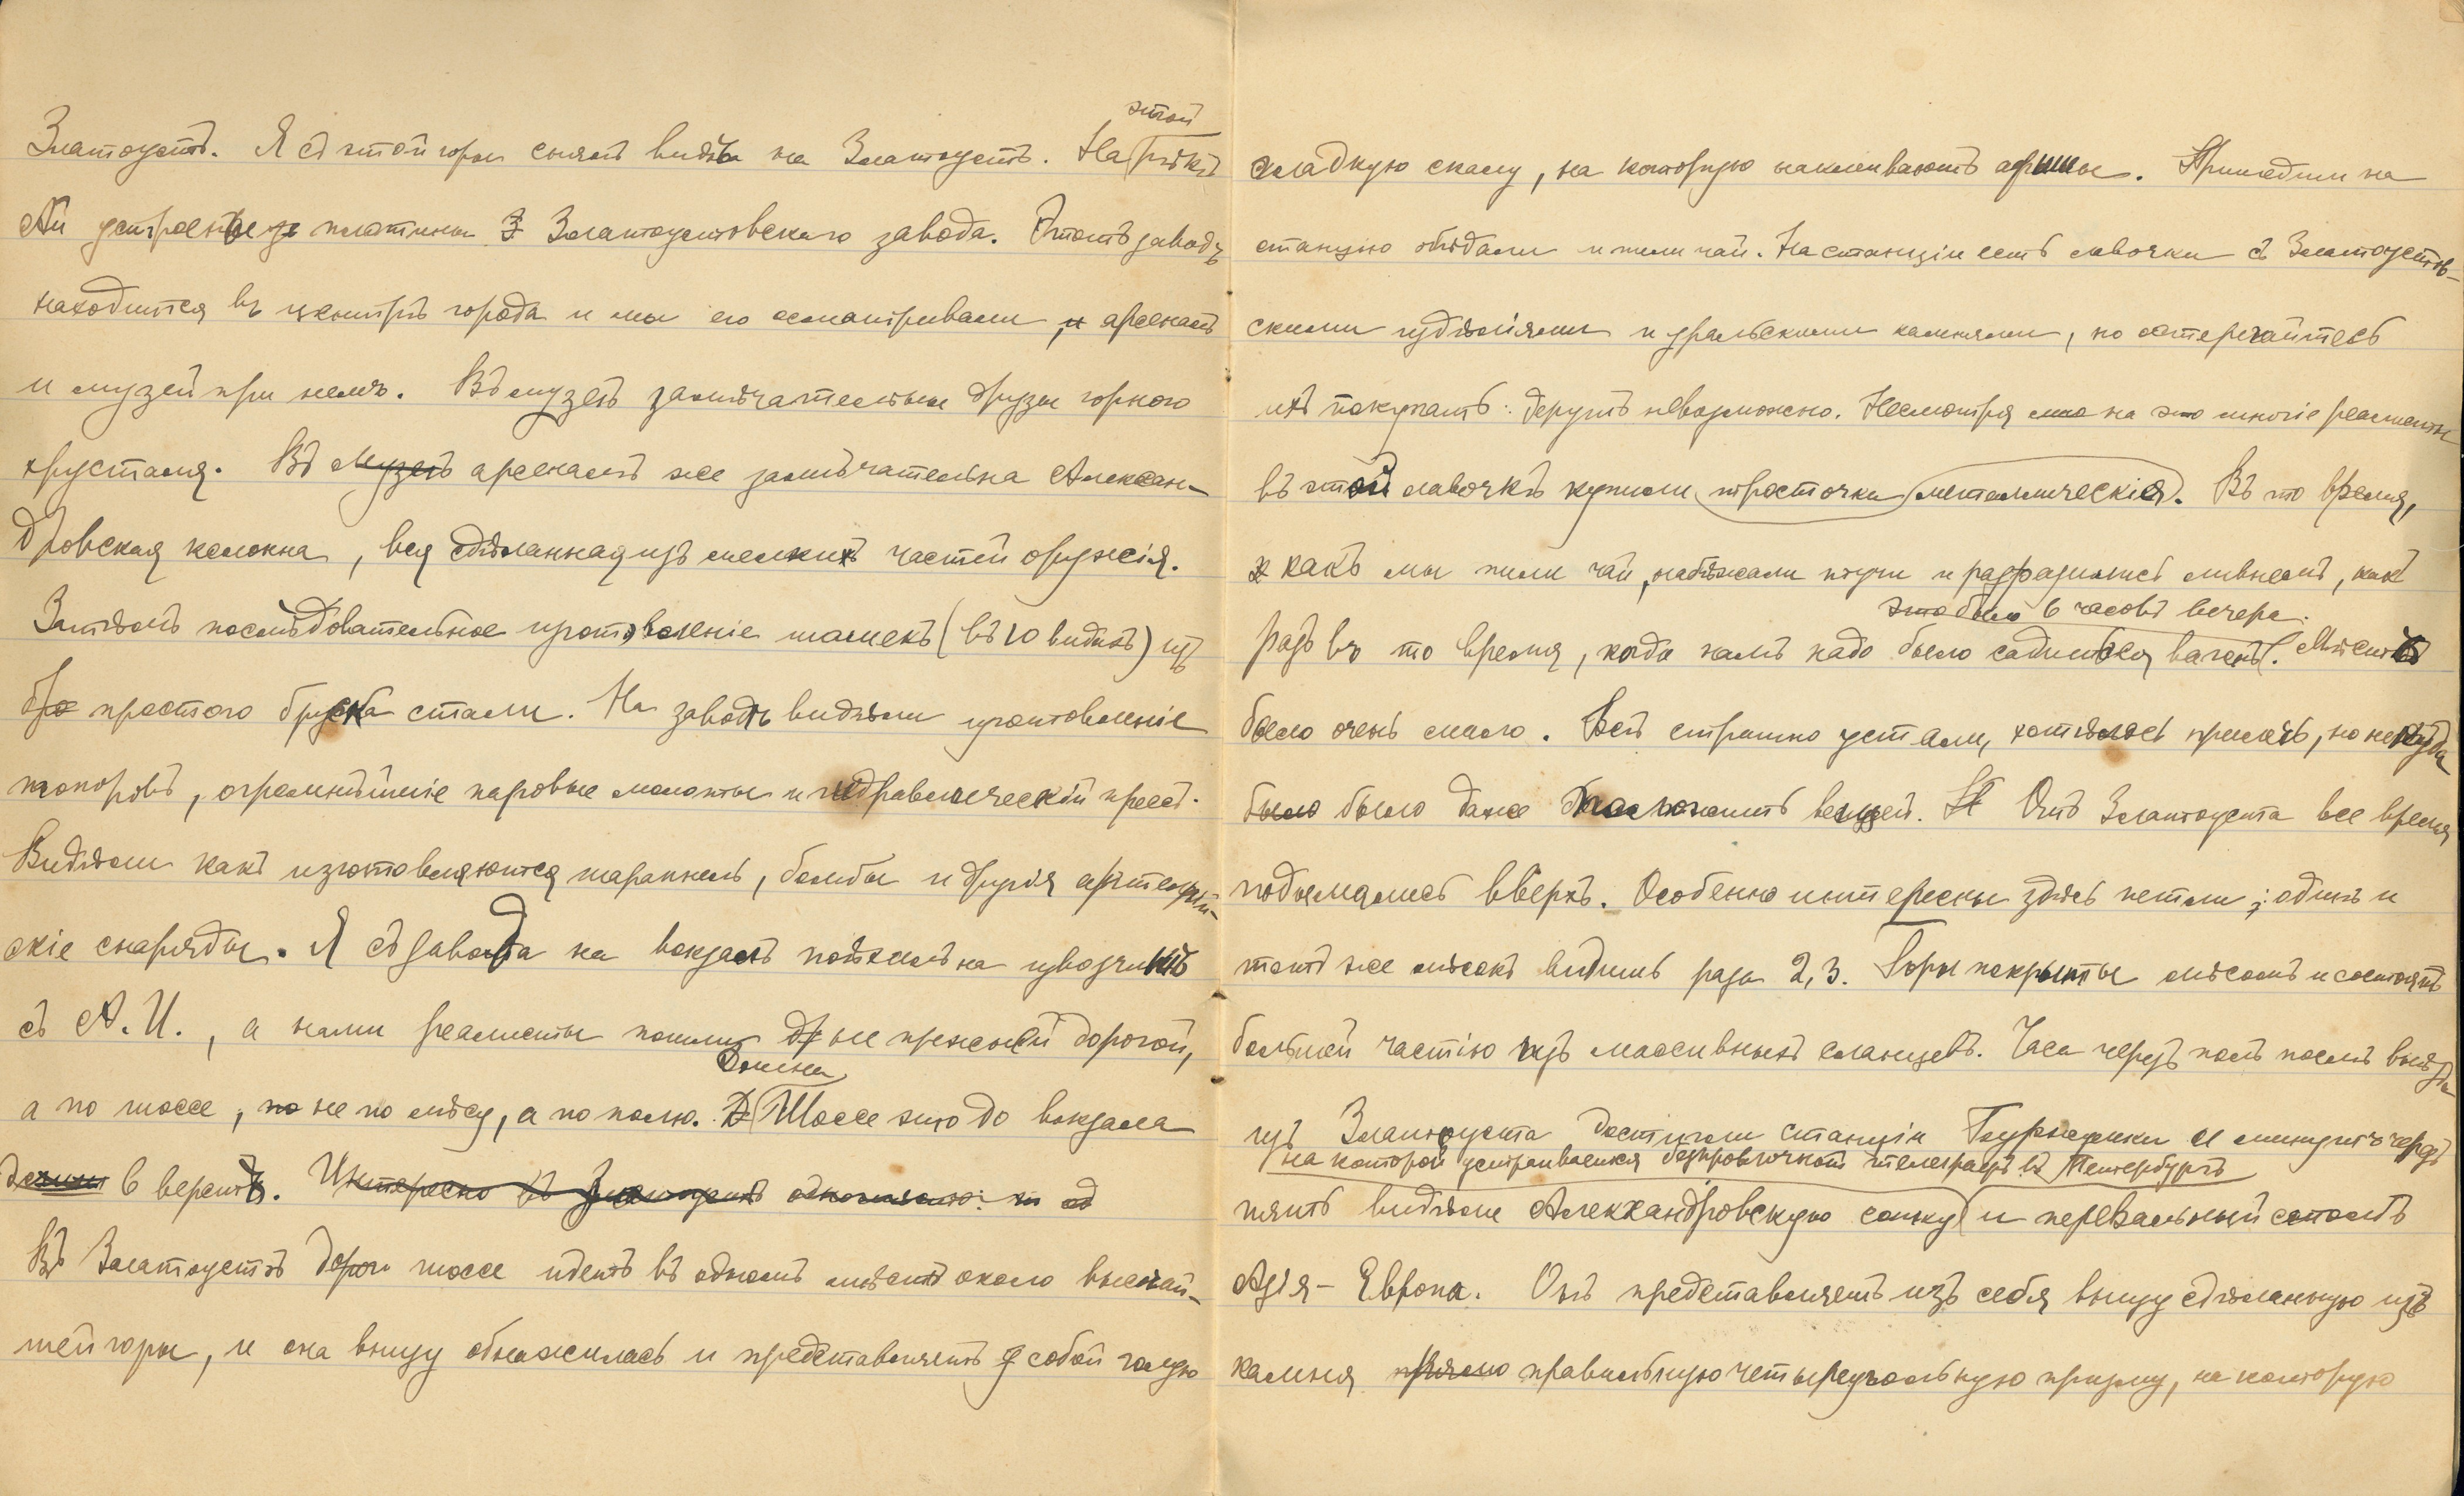 Златоустъ. Я съ этой горы снялъ видъ на Златоустъ. На этой рѣкѣ
Ай устроены плотины З Златоустовскаго завода. Этотъ заводъ
находится въ центрѣ города и мы его осматривали, и арсеналъ
и музей при немъ. Въ музеѣ замѣчательны друзы горного
хрусталя. Въ Музеѣ арсеналѣ же замѣчательна Алексан-
дровская колокна, вся сдѣланная изъ мелкихъ частей оружія.
Затѣмъ послѣдовательное изготовленіе шашекъ (въ 10 видахъ) изъ
бро простого бруска стали. На заводѣ видѣли изготовленіе
топоровъ, огромнѣйшіе паровые молоты и гидравлическій прессъ.
Видѣли какъ изготовляются шрапнель, бомбы и другія артилерій-
скіе снаряды. Я съ завода на вокзалъ поѣхалъ на извозчикѣ
съ А. И., а наши реалисты пошли др не прежней дорогой,
а по шоссе, по не по лѣсу, а по полю. Д Длина Шоссе это до вокзала
длины 6 верстъ. Интересно въ Златоустѣ од
Въ Златоустѣ дорог шоссе идетъ въ одномъ мѣстѣ около высочай-
шей горы, и она внизу обнажилась и представляетъ собой голую
гладкую скалу, на которую наклеиваютъ афиши. Пришедши на
станцію обѣдали и пили чай. На станціи есть лавочки съ Златоустов-
скими издѣліями и уральскими камнями, но остерегайтесь
ихъ покупать: дерутъ невозможно. Несмотря на это многіе реалисты
въ этой лавочкѣ купили тросточки металлическія. Въ то время,
к какъ мы пили чай, набѣжали тучи и разразились ливнемъ, какъ
это было 6 часовъ вечера.
разъ въ то время, когда намъ надо было садиться въ вагонъ. Мѣстъ
было очень мало. Всѣ страшно устали, хотѣлось прилечь, но некуда
было было даже положить вещей. Н Отъ Златоуста все время
подымались вверхъ. Особенно интересны здѣсь петли; одинъ и
тотъ же лѣсокъ видишь раза 2, 3. Горы покрыты лѣсомъ и состоятъ
большей частію изъ массивныхъ сланцевъ. Часа черезъ полъ послѣ выѣзда
изъ Златоуста достигли станціи Уржумки и минутъ черезъ
на которой устраивается безпроволочный телеграфъ въ Петербургъ
пять видѣли Александровскую сопку и перевальный столбъ
Азія - Европа. Онъ представляетъ изъ себя внизу сдѣланную изъ
камня прямо правильную четыреугольную призму, на которую